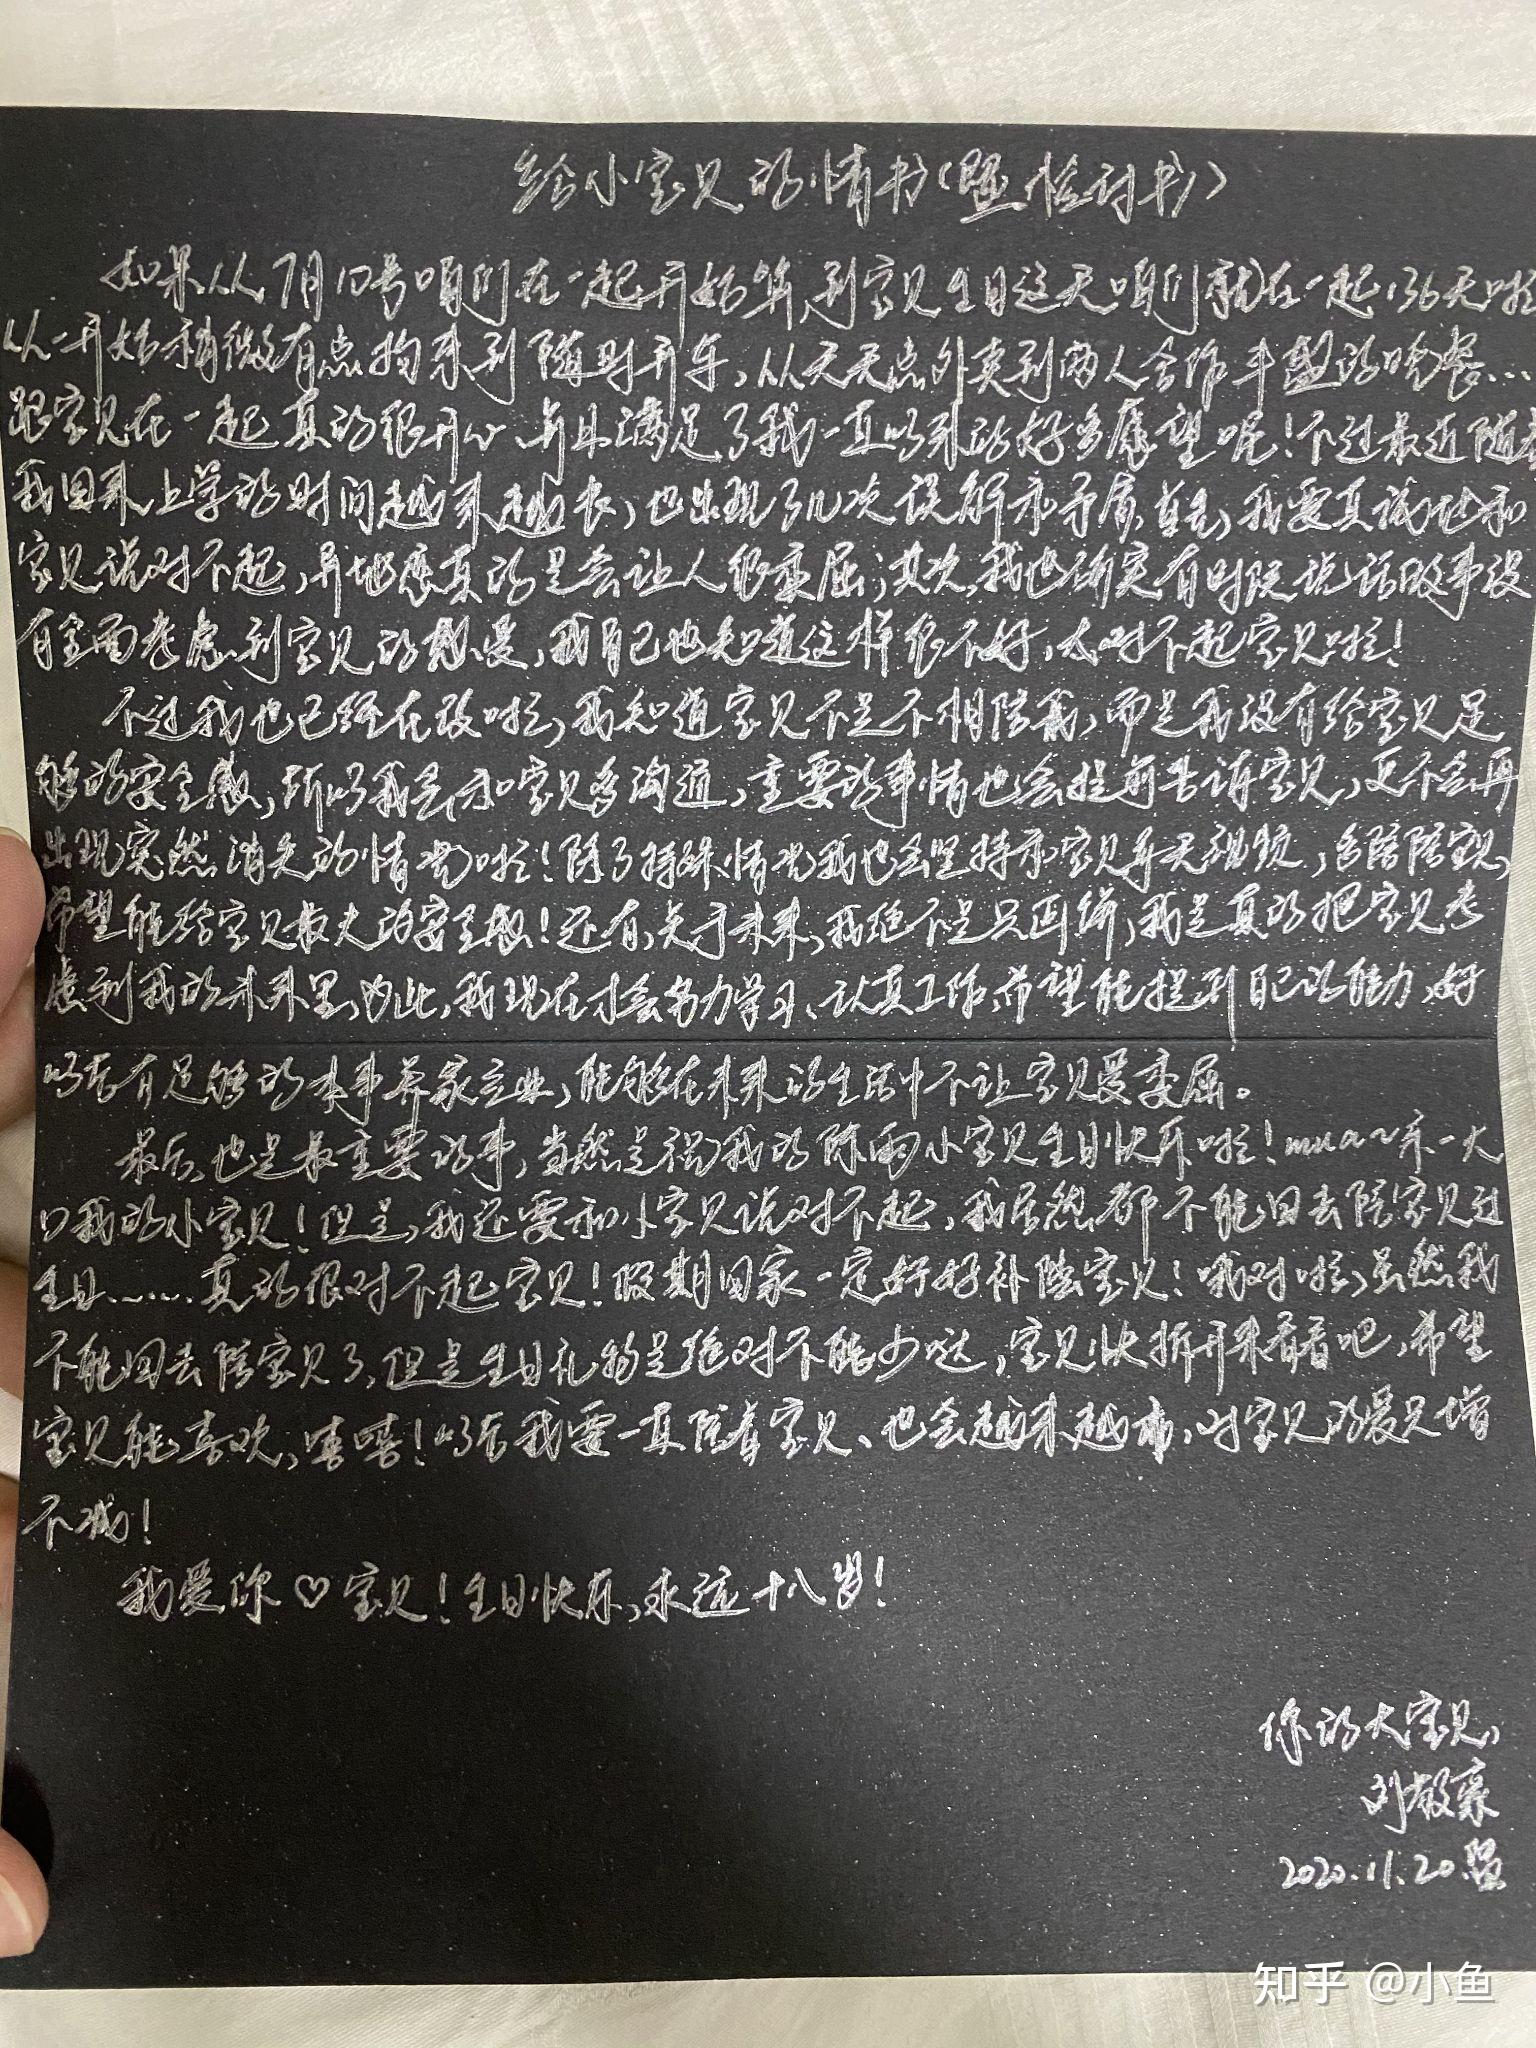 给小宝贝的情书(暨检讨书)
如果从7月17号咱们在一起开始算,到宝贝生日这天咱们就在一起136天啦
从一开始稍微有点拘束到随时开车,从天天点外卖到两人合作丰盛的晚餐……
跟宝贝在一起真的很开心、并且满足了我一直以来的好多愿望呢!不过最近随着
我回来上学的时间越来越长,也出现了几次误解和矛盾,首先,我要真诚地和
宝贝说对不起,异地恋真的是会让人很委屈;其次,我也确实有时候说话做事没
有全面考虑到宝贝的感受,我自己也知道这样很不好,太对不起宝贝啦!
不过我也已经在改啦,我知道宝贝不是不相信我,而是我没有给宝贝足
够的安全感,所以我会和宝贝多沟通,主要的事情也会提前告诉宝贝,更不会再
出现突然消失的情况啦!除了特殊情况我也会坚持和宝贝每天视频,多陪陪宝贝,
希望能给宝贝最大的安全感!还有,关于未来,我绝不是只画饼,我是真的把宝贝考
虑到我的未来里,为此,我现在才会努力学习、认真工作,希望能提到自己的能力,好
以后有足够的本事养家立业,能够在未来的生活中不让宝贝受委屈。
最后,也是最重要的事,当然是祝我的小宝贝生日快乐啦!mua~亲一大
口我的小宝贝!但是,我还要和小宝贝说对不起,我居然都不能回去陪宝贝过
生日……真的很对不起宝贝!假期回家一定好好补偿宝贝!哦对啦,虽然我
不能回去陪宝贝了,但是生日礼物是绝对不能少哒,宝贝快拆开来看看吧,希望
宝贝能喜欢,嘻嘻!以后我要一直陪着宝贝、也会越来越,对宝贝的爱只增
不减!
我爱你♡宝贝!生日快乐,永远十八岁!
你的大宝贝,
刘
2020.11.20
知乎 @小鱼